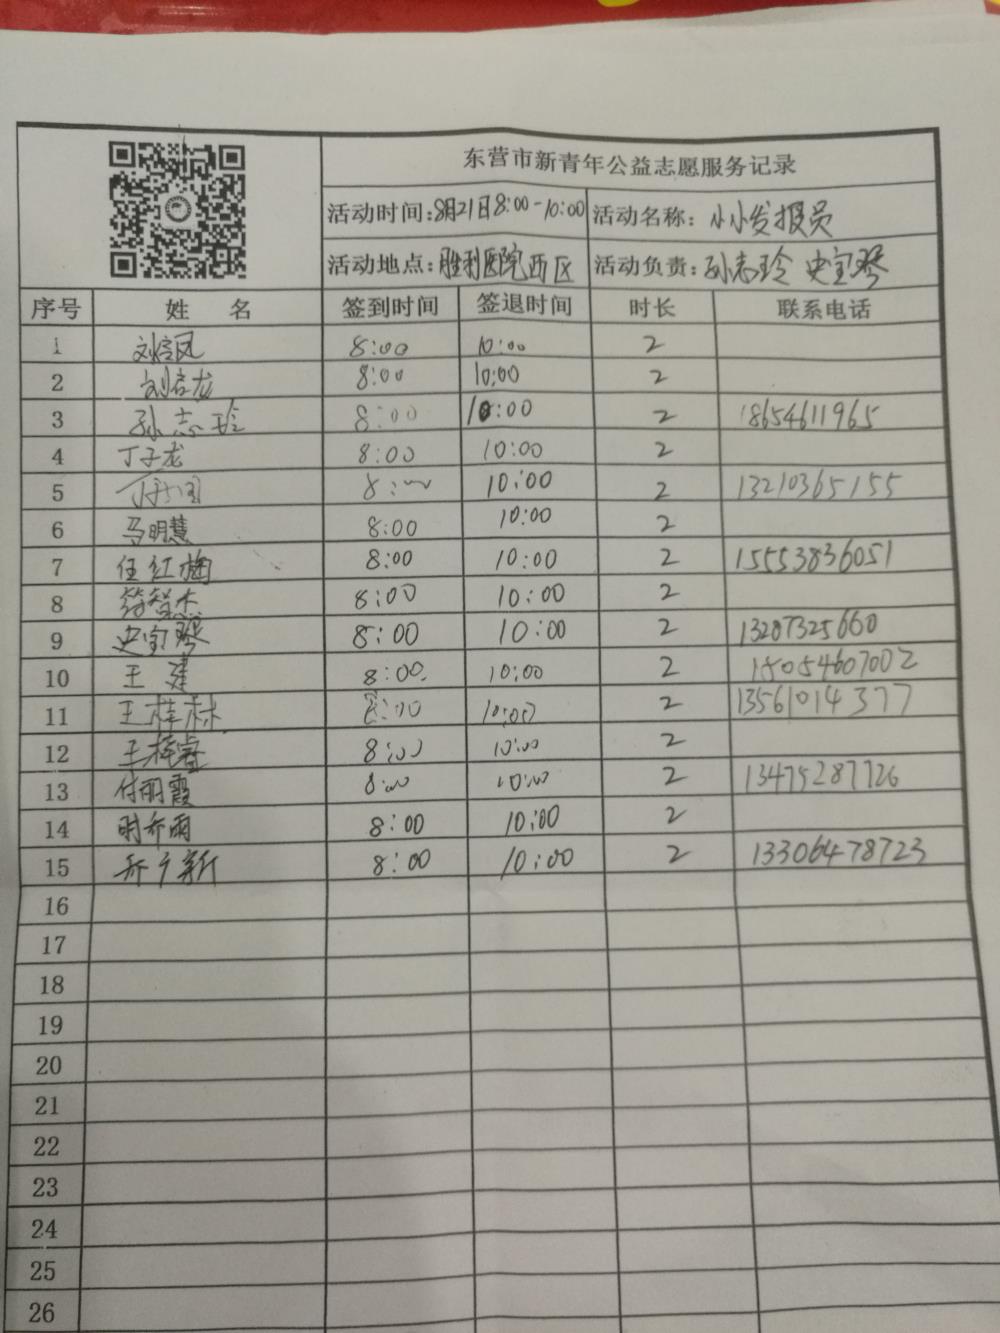 东营市新青年公益志愿服务记录
活动时间:8月21日8:00-10:00 活动名称:小小发报员
活动地点:胜利医院西区 活动负责:孙志玲 史宝琴
序号 姓名 签到时间 签退时间 时长 联系电话
1 8:00 10:00 2
2 刘启龙 8:00 10:00 2
3 孙志玲 8:00 10:00 2 18654611965
4 丁子龙 8:00 10:00 2
5 8:00 10:00 2 13210365155
6 马明慧 8:00 10:00 2
7 任红梅 8:00 10:00 2 15553836051
8 智杰 8:00 10:00 2
9 史宝琴 8:00 10:00 2 13287325660
10 王建 8:00 10:00 2 15054607002
11 王梓林 8:00 10:00 2 13561014377
12 王梓睿 8:00 10:00 2
13 付丽霞 8:00 10:00 2 13475287726
14 时乔雨 8:00 10:00 2
15 乔广新 8:00 10:00 2 13306478723
16
17
18
19
20
21
22
23
24
25
26